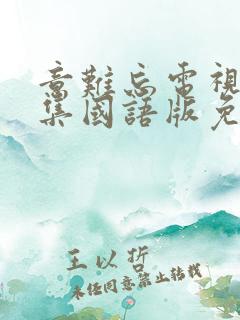 意難忘電視
集國語版免
王以哲
未经同意禁止转载